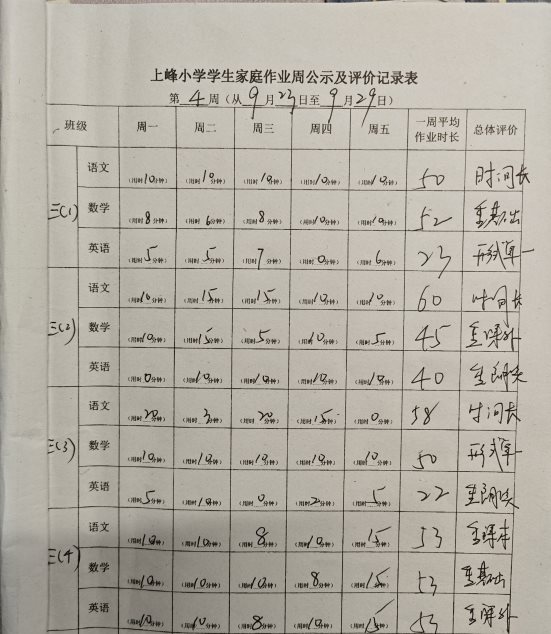 上峰小学学生家庭作业周公示及评价记录表
第 4 周（从 9 月 23 日至 9 月 29 日）
班级 周一 周二 周三 周四 周五 一周平均作业时长 总体评价
三(1) 语文 （用时10分钟） （用时10分钟） （用时10分钟） （用时10分钟） （用时10分钟） 50 时间长
数学 （用时8分钟） （用时6分钟） （用时8分钟） （用时10分钟） （用时10分钟） 52 重基础
英语 （用时5分钟） （用时5分钟） （用时7分钟） （用时0分钟） （用时6分钟） 23 形式单一
三(2) 语文 （用时10分钟） （用时15分钟） （用时15分钟） （用时10分钟） （用时10分钟） 60 时间长
数学 （用时10分钟） （用时15分钟） （用时5分钟） （用时10分钟） （用时5分钟） 45 重课外
英语 （用时0分钟） （用时10分钟） （用时10分钟） （用时10分钟） （用时10分钟） 40 重朗读
三(3) 语文 （用时20分钟） （用时3分钟） （用时20分钟） （用时15分钟） （用时0分钟） 58 时间长
数学 （用时10分钟） （用时10分钟） （用时10分钟） （用时10分钟） （用时10分钟） 50 形式单一
英语 （用时5分钟） （用时10分钟） （用时0分钟） （用时2分钟） （用时5分钟） 22 重朗读
三(4) 语文 （用时10分钟） （用时10分钟） （用时8分钟） （用时10分钟） （用时15分钟） 53 重课本
数学 （用时10分钟） （用时10分钟） （用时10分钟） （用时8分钟） （用时15分钟） 53 重基础
英语 （用时10分钟） （用时10分钟） （用时8分钟） （用时10分钟） （用时15分钟） 53 重课外